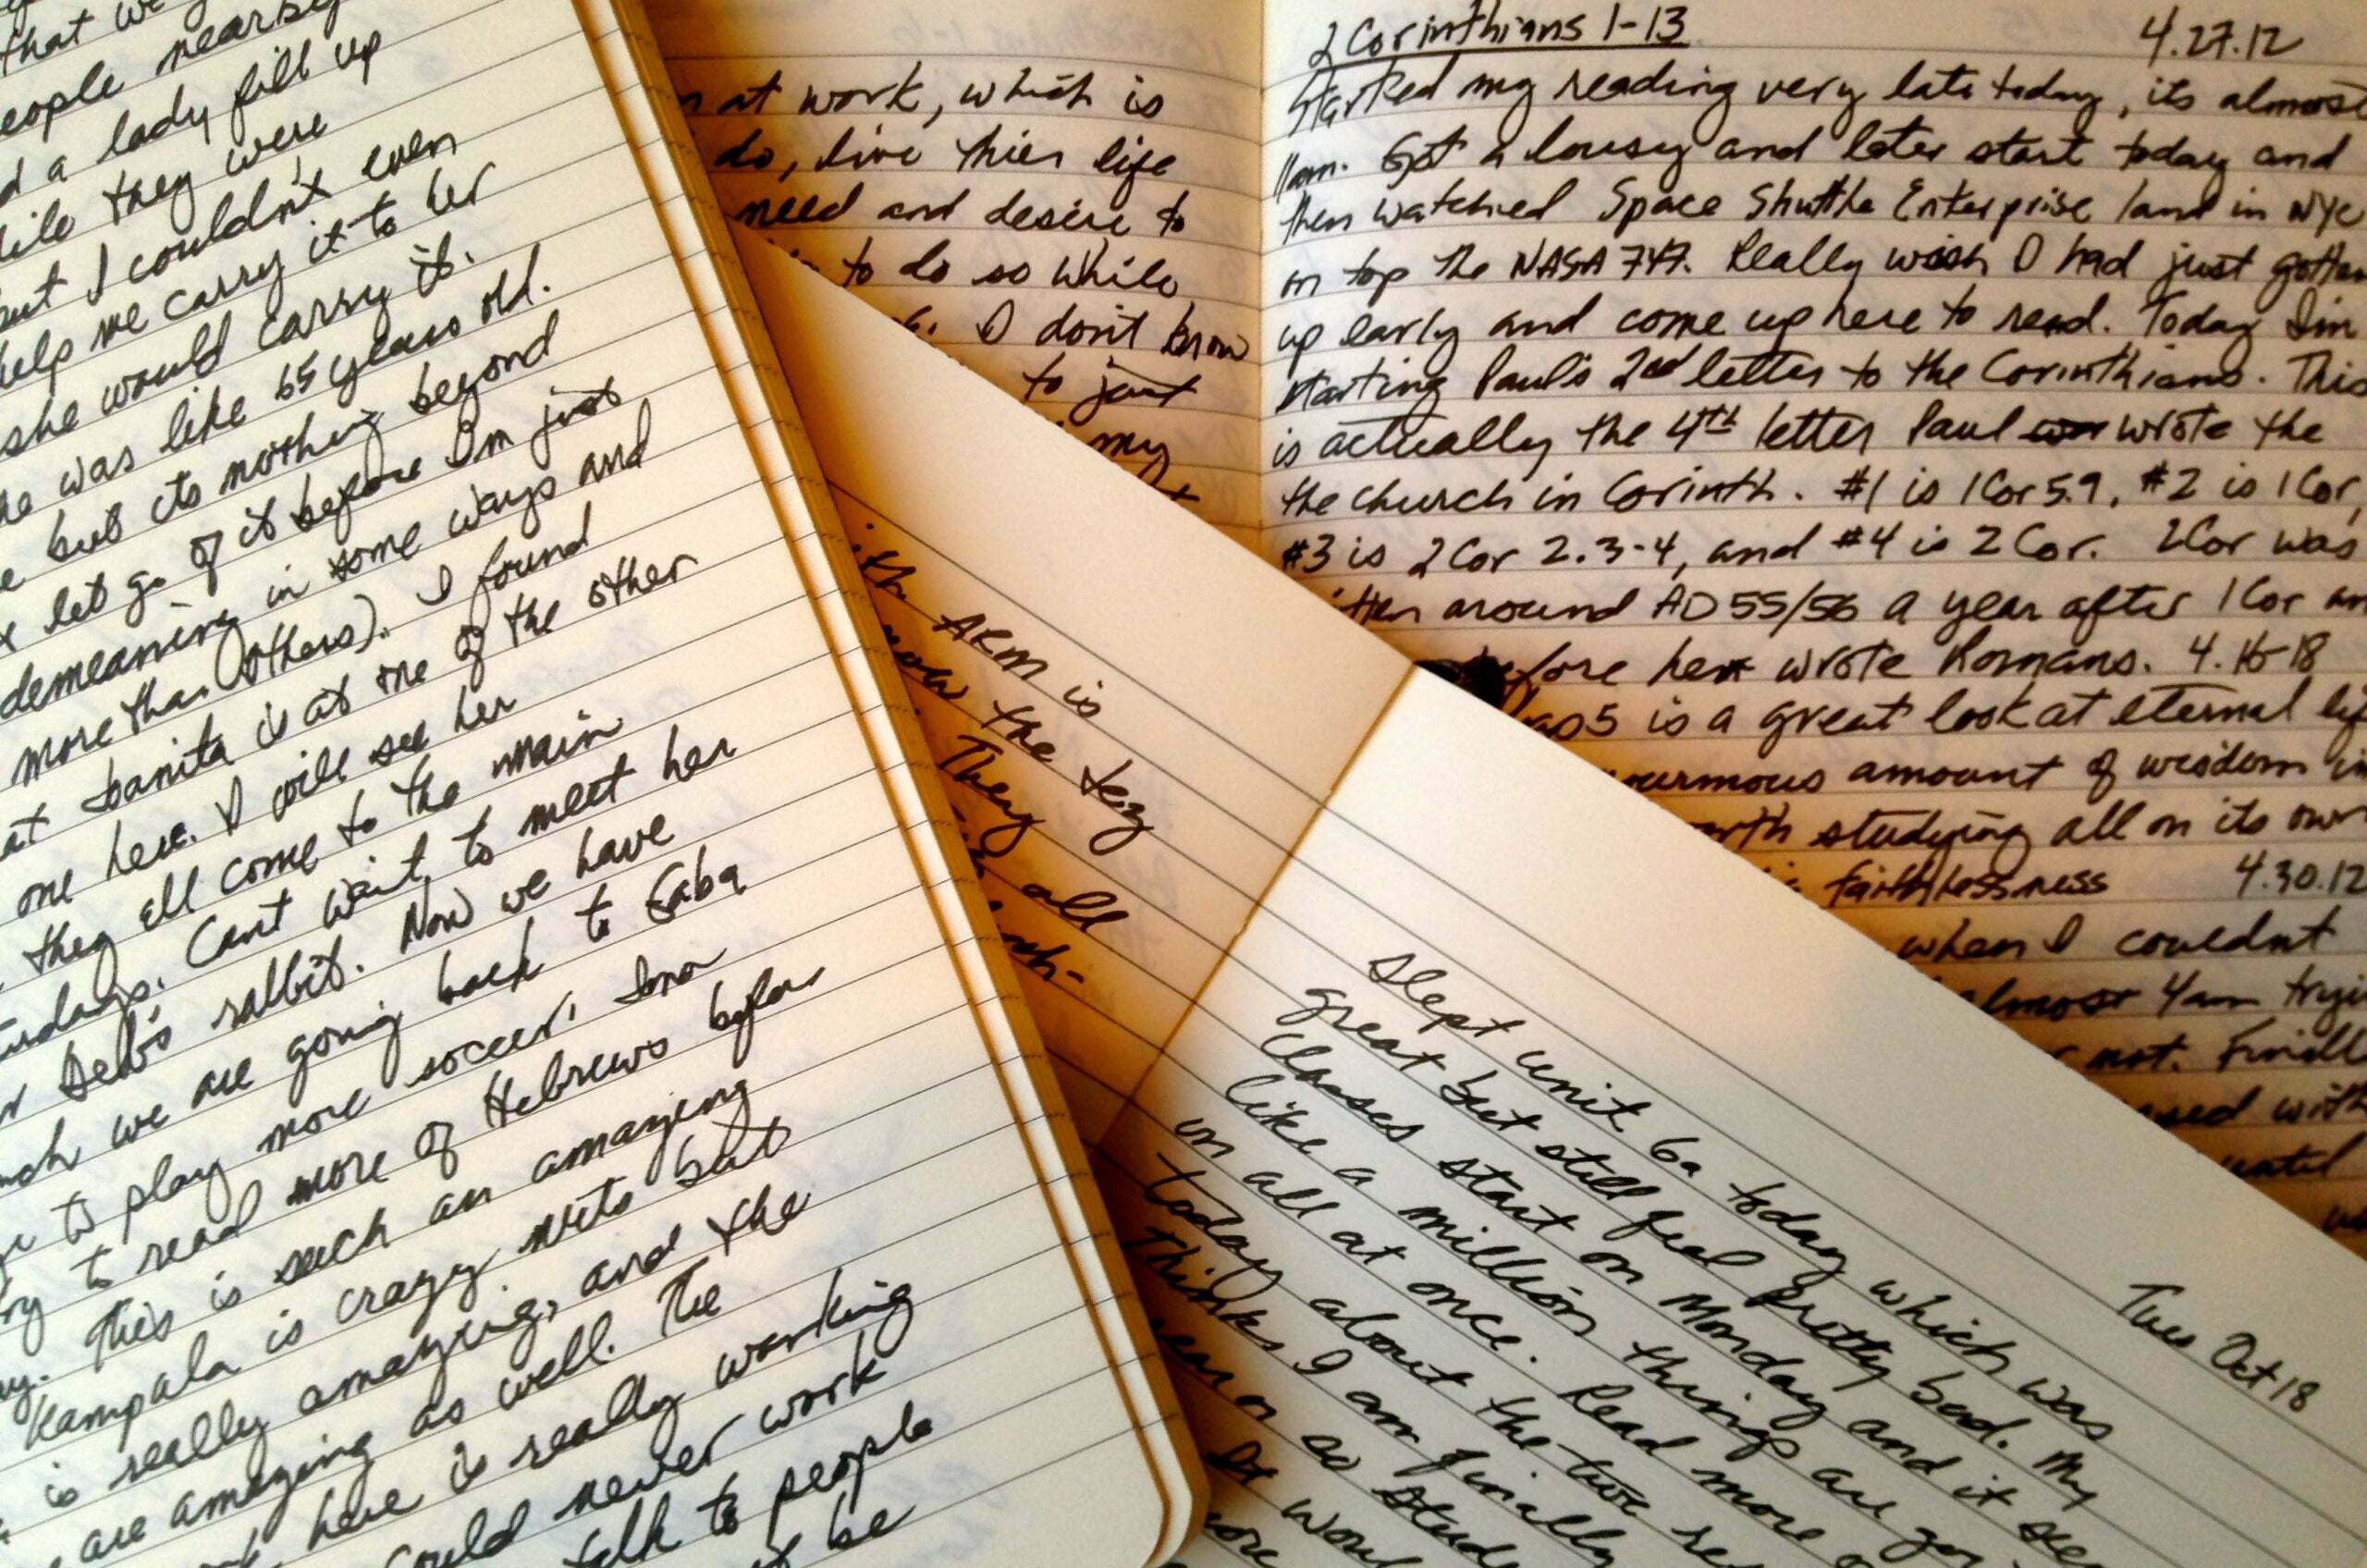 that we
people nearby
a lady fill up
while they were
but I couldn't even
help me carry it to her
she would carry it.
was like 65 years old.
but its nothing beyond
let go of it before Im just
demeaning in some ways and
more than others). I found
at Janita is at one of the other
one here. I will see her
they all come to the main
Cant wait to meet her
Deb's rabbit. Now we have
we are going back to Gaba
to play more soccer.
to read more of Hebrews before
This is such an amazing
Kampala is crazy nuts but
is really amazing, and the
are amazing as well. The
here is really working
could never work
talk to people
be
at work, which is
do, live thier life
need and desire to
to do so while
I don't know
to just
my
2 Corinthians 1-13 4.27.12
Started my reading very late today, its almost
11am. Got a lousy and later start today and
then watched Space Shuttle Enterprise land in NYC
on top the NASA 747. Really wish I had just gotten
up early and come up here to read. Today I'm
starting Paul's 2nd letter to the Corinthians. This
is actually the 4th letter Paul wrote the
the church in Corinth. #1 is 1Cor 5.9, #2 is 1Cor,
#3 is 2Cor 2.3-4, and #4 is 2Cor. 2Cor was
around AD 55/56 a year after 1Cor
before he wrote Romans. 4.16-18
is a great look at eternal
amount of wisdom in
studying all on its own
faithlessness 4.30.12
when I couldnt
almost 4am
not.
with
until
ARM is
now the
They
all
Tues Oct 18
Slept until 6a today which was
great but still feel pretty bad. My
classes start on Monday and it
like a million things are
in all at once. Read more
today about the two
thinks I am finally
so